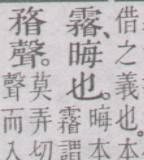 借之義也。本
霿、晦也。
晦本
霿謂
瞀聲。
莫弄切
聲而入